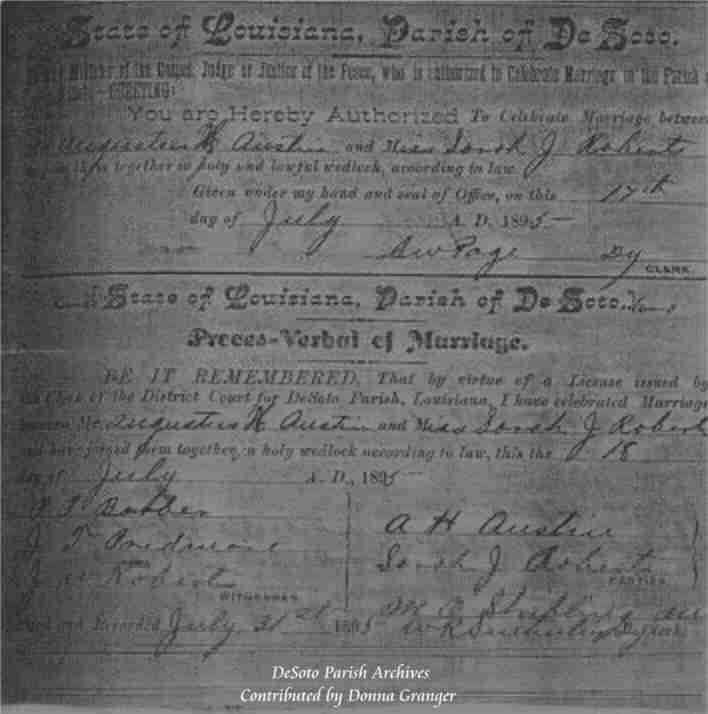 State of Louisiana, Parish of De Soto.
Minister of the Gospel, Judge or Justice of the Peace, who is authorized to Celebrate Marriage in the Parish
GREETING:
You are Hereby Authorized To Celebrate Marriage between
Augustus H Austin and Miss Sarah J Roberts
them together in holy and lawful wedlock, according to law
Given under my hand and seal of Office, on this 17th
day of July A. D. 1895
Page Dy
CLERK.
State of Louisiana, Parish of De Soto.
Proces-Verbal of Marriage.
BE IT REMEMBERED, That by virtue of a License issued by
the Clerk of the District Court for DeSoto Parish, Louisiana, I have celebrated Marriage
between Mr. Augustus H Austin and Miss Sarah J Robert
and have joined them together in holy wedlock according to law, this the 18
day of July A. D., 1895
A H Austin
J T Predmore
Sarah J Robert
PARTIES
J Robert
WITNESSES
and Recorded July 31st 1895
DeSoto Parish Archives
Contributed by Donna Granger